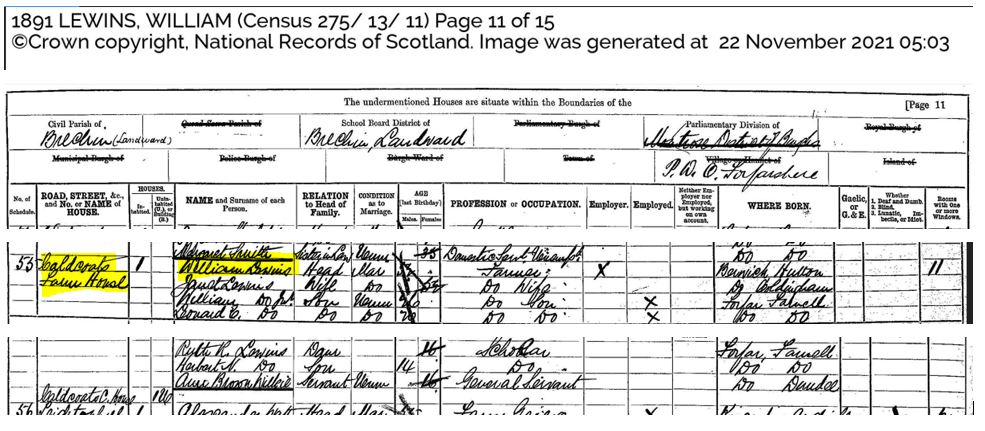 1891 LEWINS, WILLIAM (Census 275/ 13/ 11) Page 11 of 15
©Crown copyright, National Records of Scotland. Image was generated at 22 November 2021 05:03
The undermentioned Houses are situate within the Boundaries of the [Page 11
Civil Parish of Quoad Sacra Parish of School Board District of Parliamentary Burgh of Parliamentary Division of Royal Burgh of
Brechin (Landward) Brechin, Landward Montrose District of Burghs
Municipal Burgh of Police Burgh of Burgh Ward of Town of Village or Hamlet of Island of
P. W. O. Forfarshire
No. of Schedule. ROAD, STREET, &c., and No. or NAME of HOUSE. HOUSES. Inhabited. Uninhabited (U.), or Building (B.) NAME and Surname of each Person. RELATION to Head of Family. CONDITION as to Marriage. AGE [last Birthday] Males. Females. PROFESSION or OCCUPATION. Employer. Employed. Neither Employer nor Employed, but working on own account. WHERE BORN. Gaelic, or G. & E. Whether 1. Deaf and Dumb. 2. Blind. 3. Lunatic, Imbecile, or Idiot. Rooms with one or more Windows.
Margaret Smith Sister in Law Unm 35 Domestic Serv. Do Do
55 Caldcoats 1 William Lewins Head Mar Farmer X Berwick Hutton 11
Farm House Janet Lewins Wife Do Do Wife Do Coldingham
William Do Jr. Son Unm Do Son X Forfar Farnell
Leonard C. Do Do Do 20 Do Do X Do Do
Ruth R. Lewins Daur 16 Scholar Forfar, Farnell
Herbert N. Do Son 14 Do Do Do
Ann Brown Servant Unm 16 General Servant Do Dundee
Caldcoats C. House 1U
56 1 Head Mar X